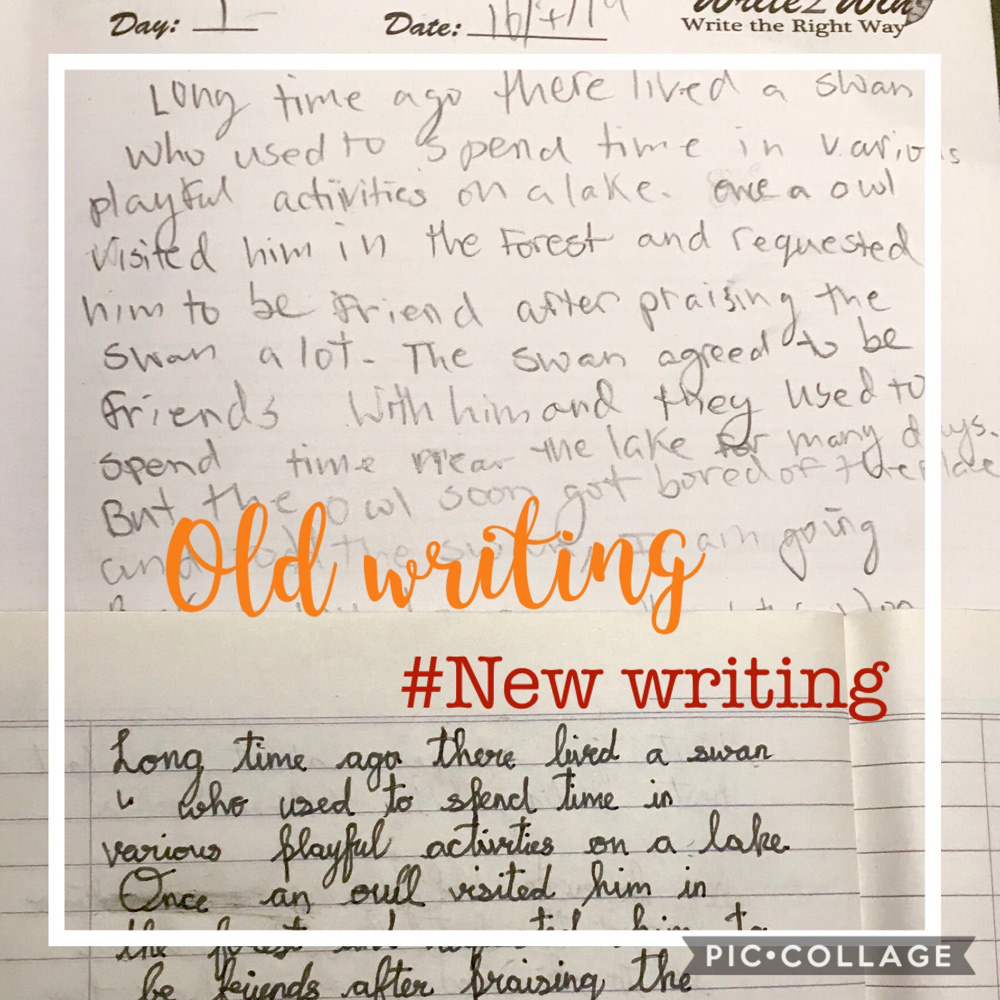 Day: 1
Date: 16/7/19
Write2Win
Write the Right Way
Long time ago there lived a swan
who used to spend time in various
playful activities on a lake. once a owl
visited him in the Forest and requested
him to be friend after praising the
swan a lot. The swan agreed to be
friends with him and they used to
spend time near the lake for many days.
But the owl soon got bored of the place
and told the swan, I am going
Old writing
#New writing
Long time ago there lived a swan
who used to spend time in
various playful activities on a lake.
Once an oull visited him in
the forest and requested him to
be feiends after praising the
PIC•COLLAGE